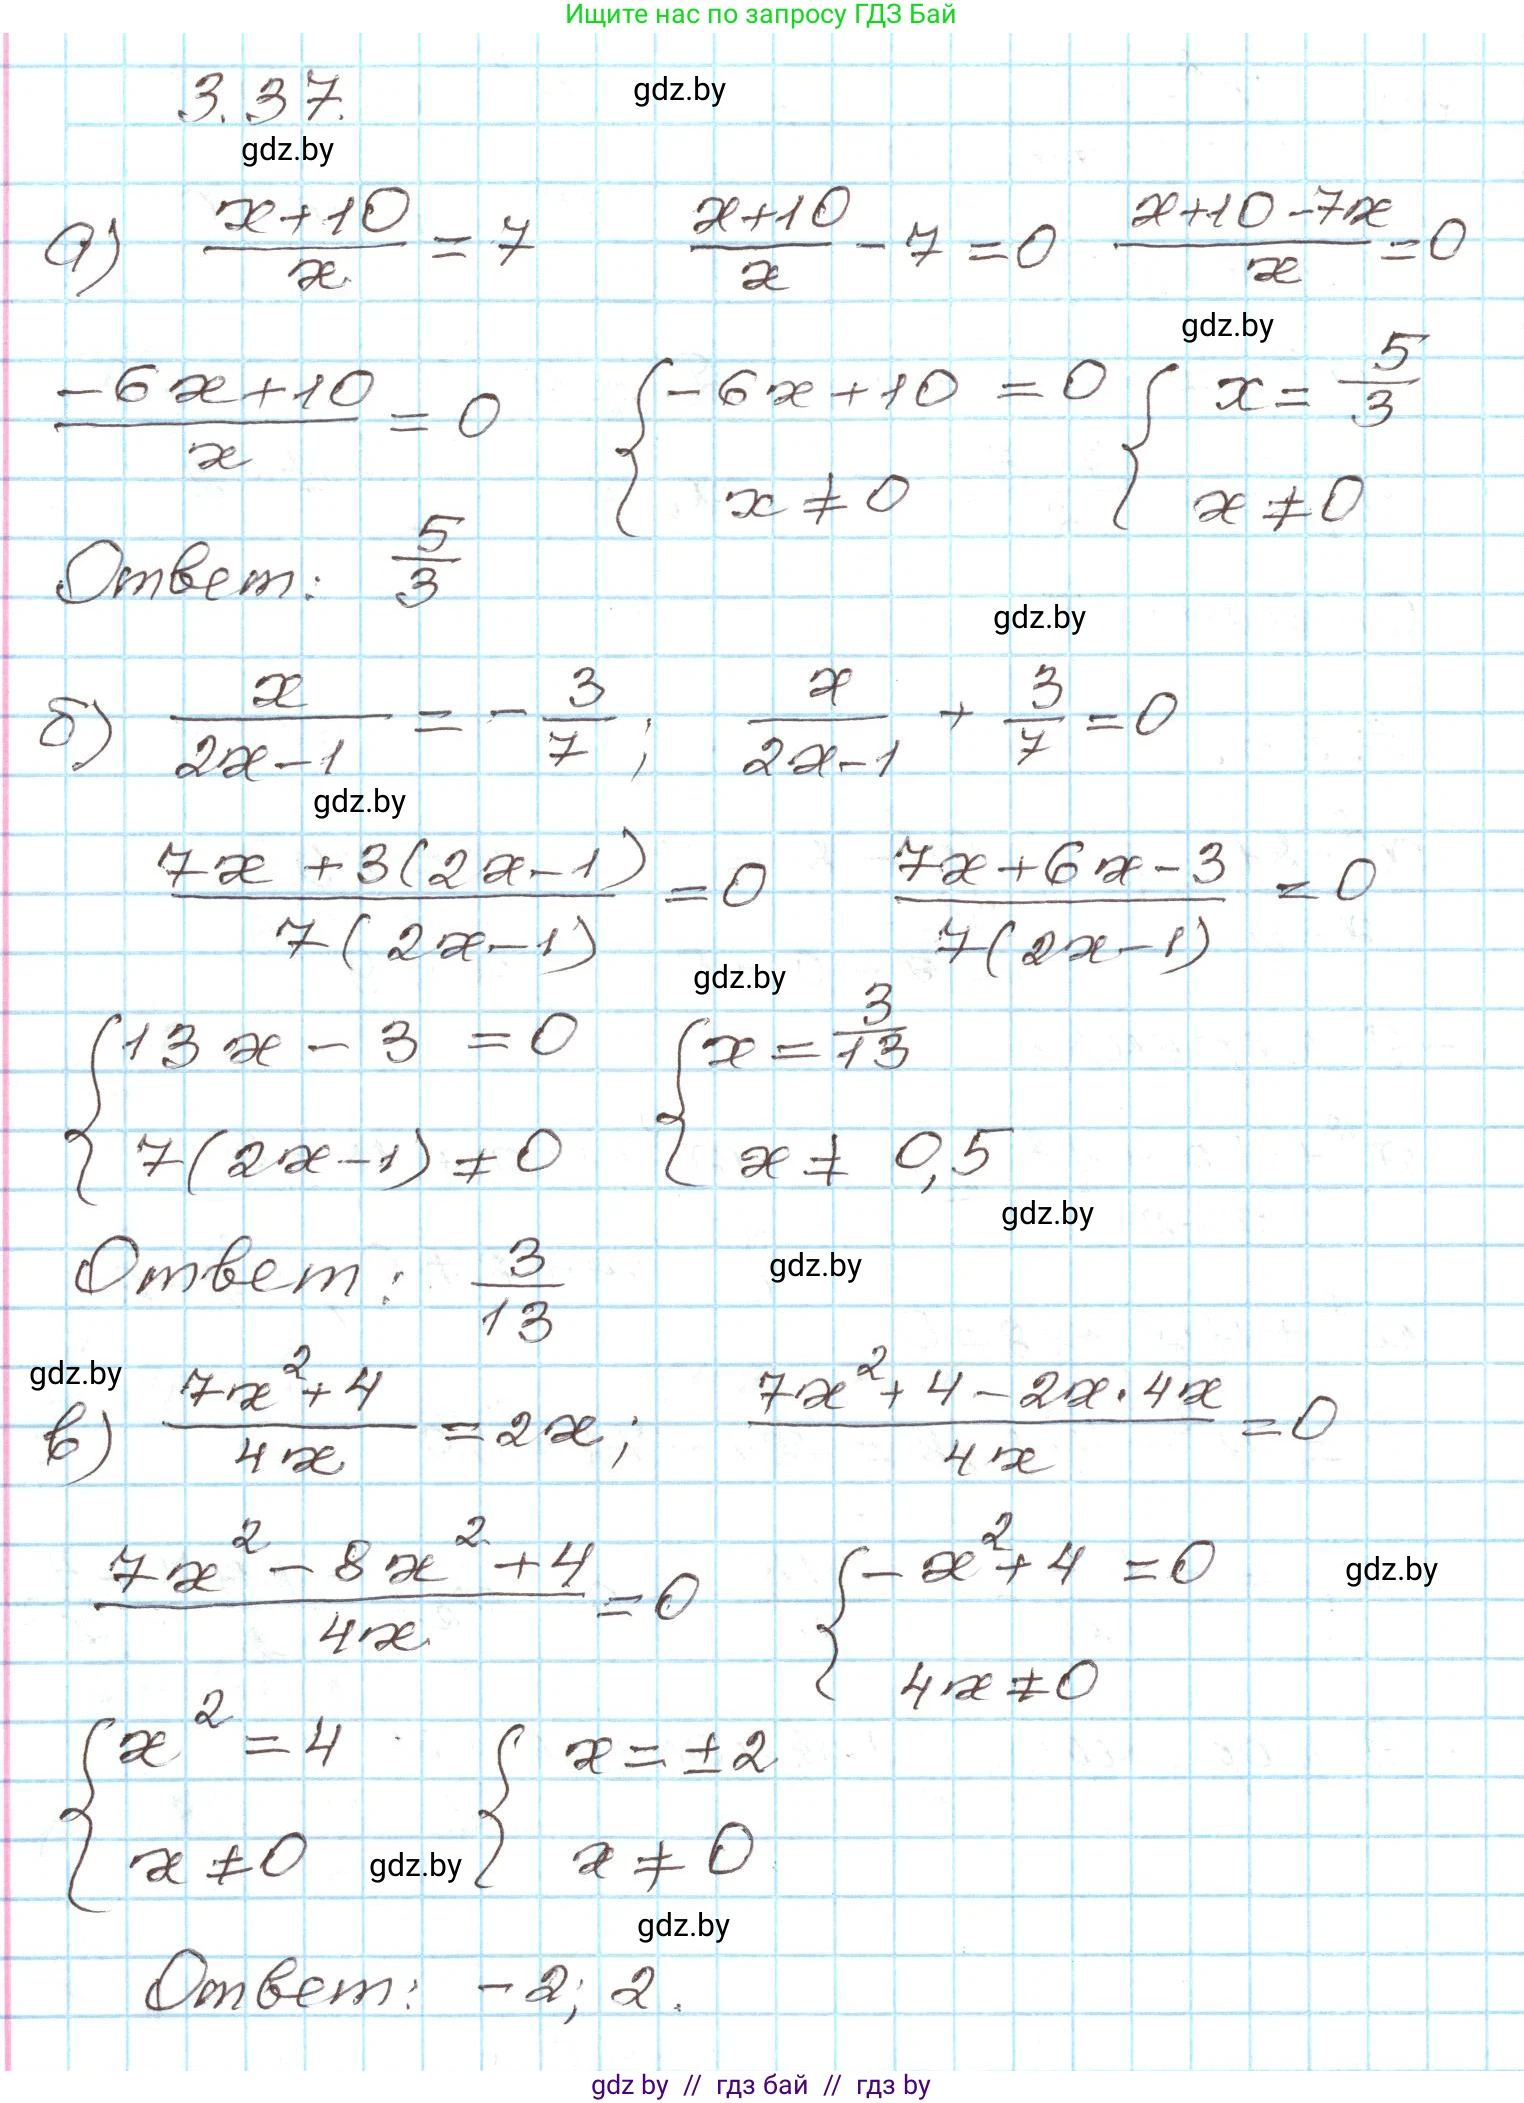 Ищите нас по запросу ГДЗ Бай
3.37.
gdz.by
gdz.by
а) (x+10)/x = 7   (x+10)/x - 7 = 0   (x+10-7x)/x = 0
gdz.by
(-6x+10)/x = 0   { -6x+10 = 0   x ≠ 0   { x = 5/3   x ≠ 0
Ответ: 5/3
gdz.by
б) x/(2x-1) = - 3/7 ;   x/(2x-1) + 3/7 = 0
gdz.by
(7x+3(2x-1))/(7(2x-1)) = 0   (7x+6x-3)/(7(2x-1)) = 0
gdz.by
{ 13x - 3 = 0   7(2x-1) ≠ 0   { x = 3/13   x ≠ 0,5
gdz.by
Ответ: 3/13
gdz.by
gdz.by
в) (7x²+4)/(4x) = 2x ;   (7x²+4-2x·4x)/(4x) = 0
(7x²-8x²+4)/(4x) = 0   { -x²+4 = 0   4x ≠ 0
gdz.by
{ x² = 4   x ≠ 0   { x = ±2   x ≠ 0
gdz.by
gdz.by
Ответ: -2; 2.
gdz by // гдз бай // гдз by